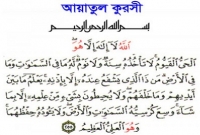 আয়াতুল কুরসী
بسم الله الرحمن الرحيم
اللَّهُ لَا إِلَٰهَ إِلَّا هُوَ
الْحَيُّ الْقَيُّومُ لَا تَأْخُذُهُ سِنَةٌ وَلَا نَوْمٌ لَهُ مَا فِي السَّمَوَاتِ وَمَا
فِي الْأَرْضِ مَنْ ذَا الَّذِي يَشْفَعُ عِنْدَهُ إِلَّا بِإِذْنِهِ يَعْلَمُ مَا بَيْنَ
أَيْدِيهِمْ وَمَا خَلْفَهُمْ وَلَا يُحِيطُونَ بِشَيْءٍ مِنْ عِلْمِهِ إِلَّا بِمَا
شَاءَ وَسِعَ كُرْسِيُّهُ السَّمَوَاتِ وَالْأَرْضَ وَلَا يَئُودُهُ حِفْظُهُمَا
وَهُوَ الْعَلِيُّ الْعَظِيمُ